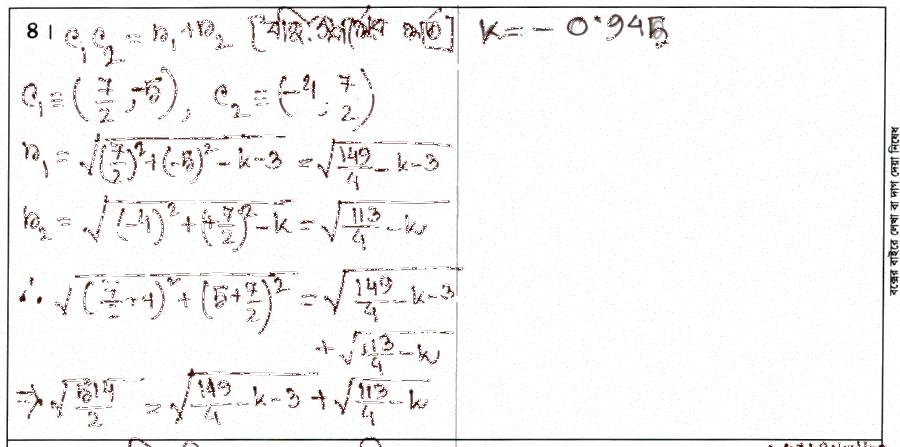 8। c₁c₂ = r₁+r₂ [বহিঃস্পর্শের শর্ত]
c₁ = (7/2, -5), c₂ = (-4, 7/2)
r₁ = √((7/2)²+(-5)²-k-3) = √(149/4-k-3)
r₂ = √((-4)²+(+7/2)²-k) = √(113/4-k)
∴ √((7/2+4)²+(5+7/2)²) = √(149/4-k-3)
+ √(113/4-k)
⇒ √514/2 = √(149/4-k-3) + √(113/4-k)
k = - 0.945
বক্সের বাইরে লেখা বা দাগ দেয়া নিষেধ